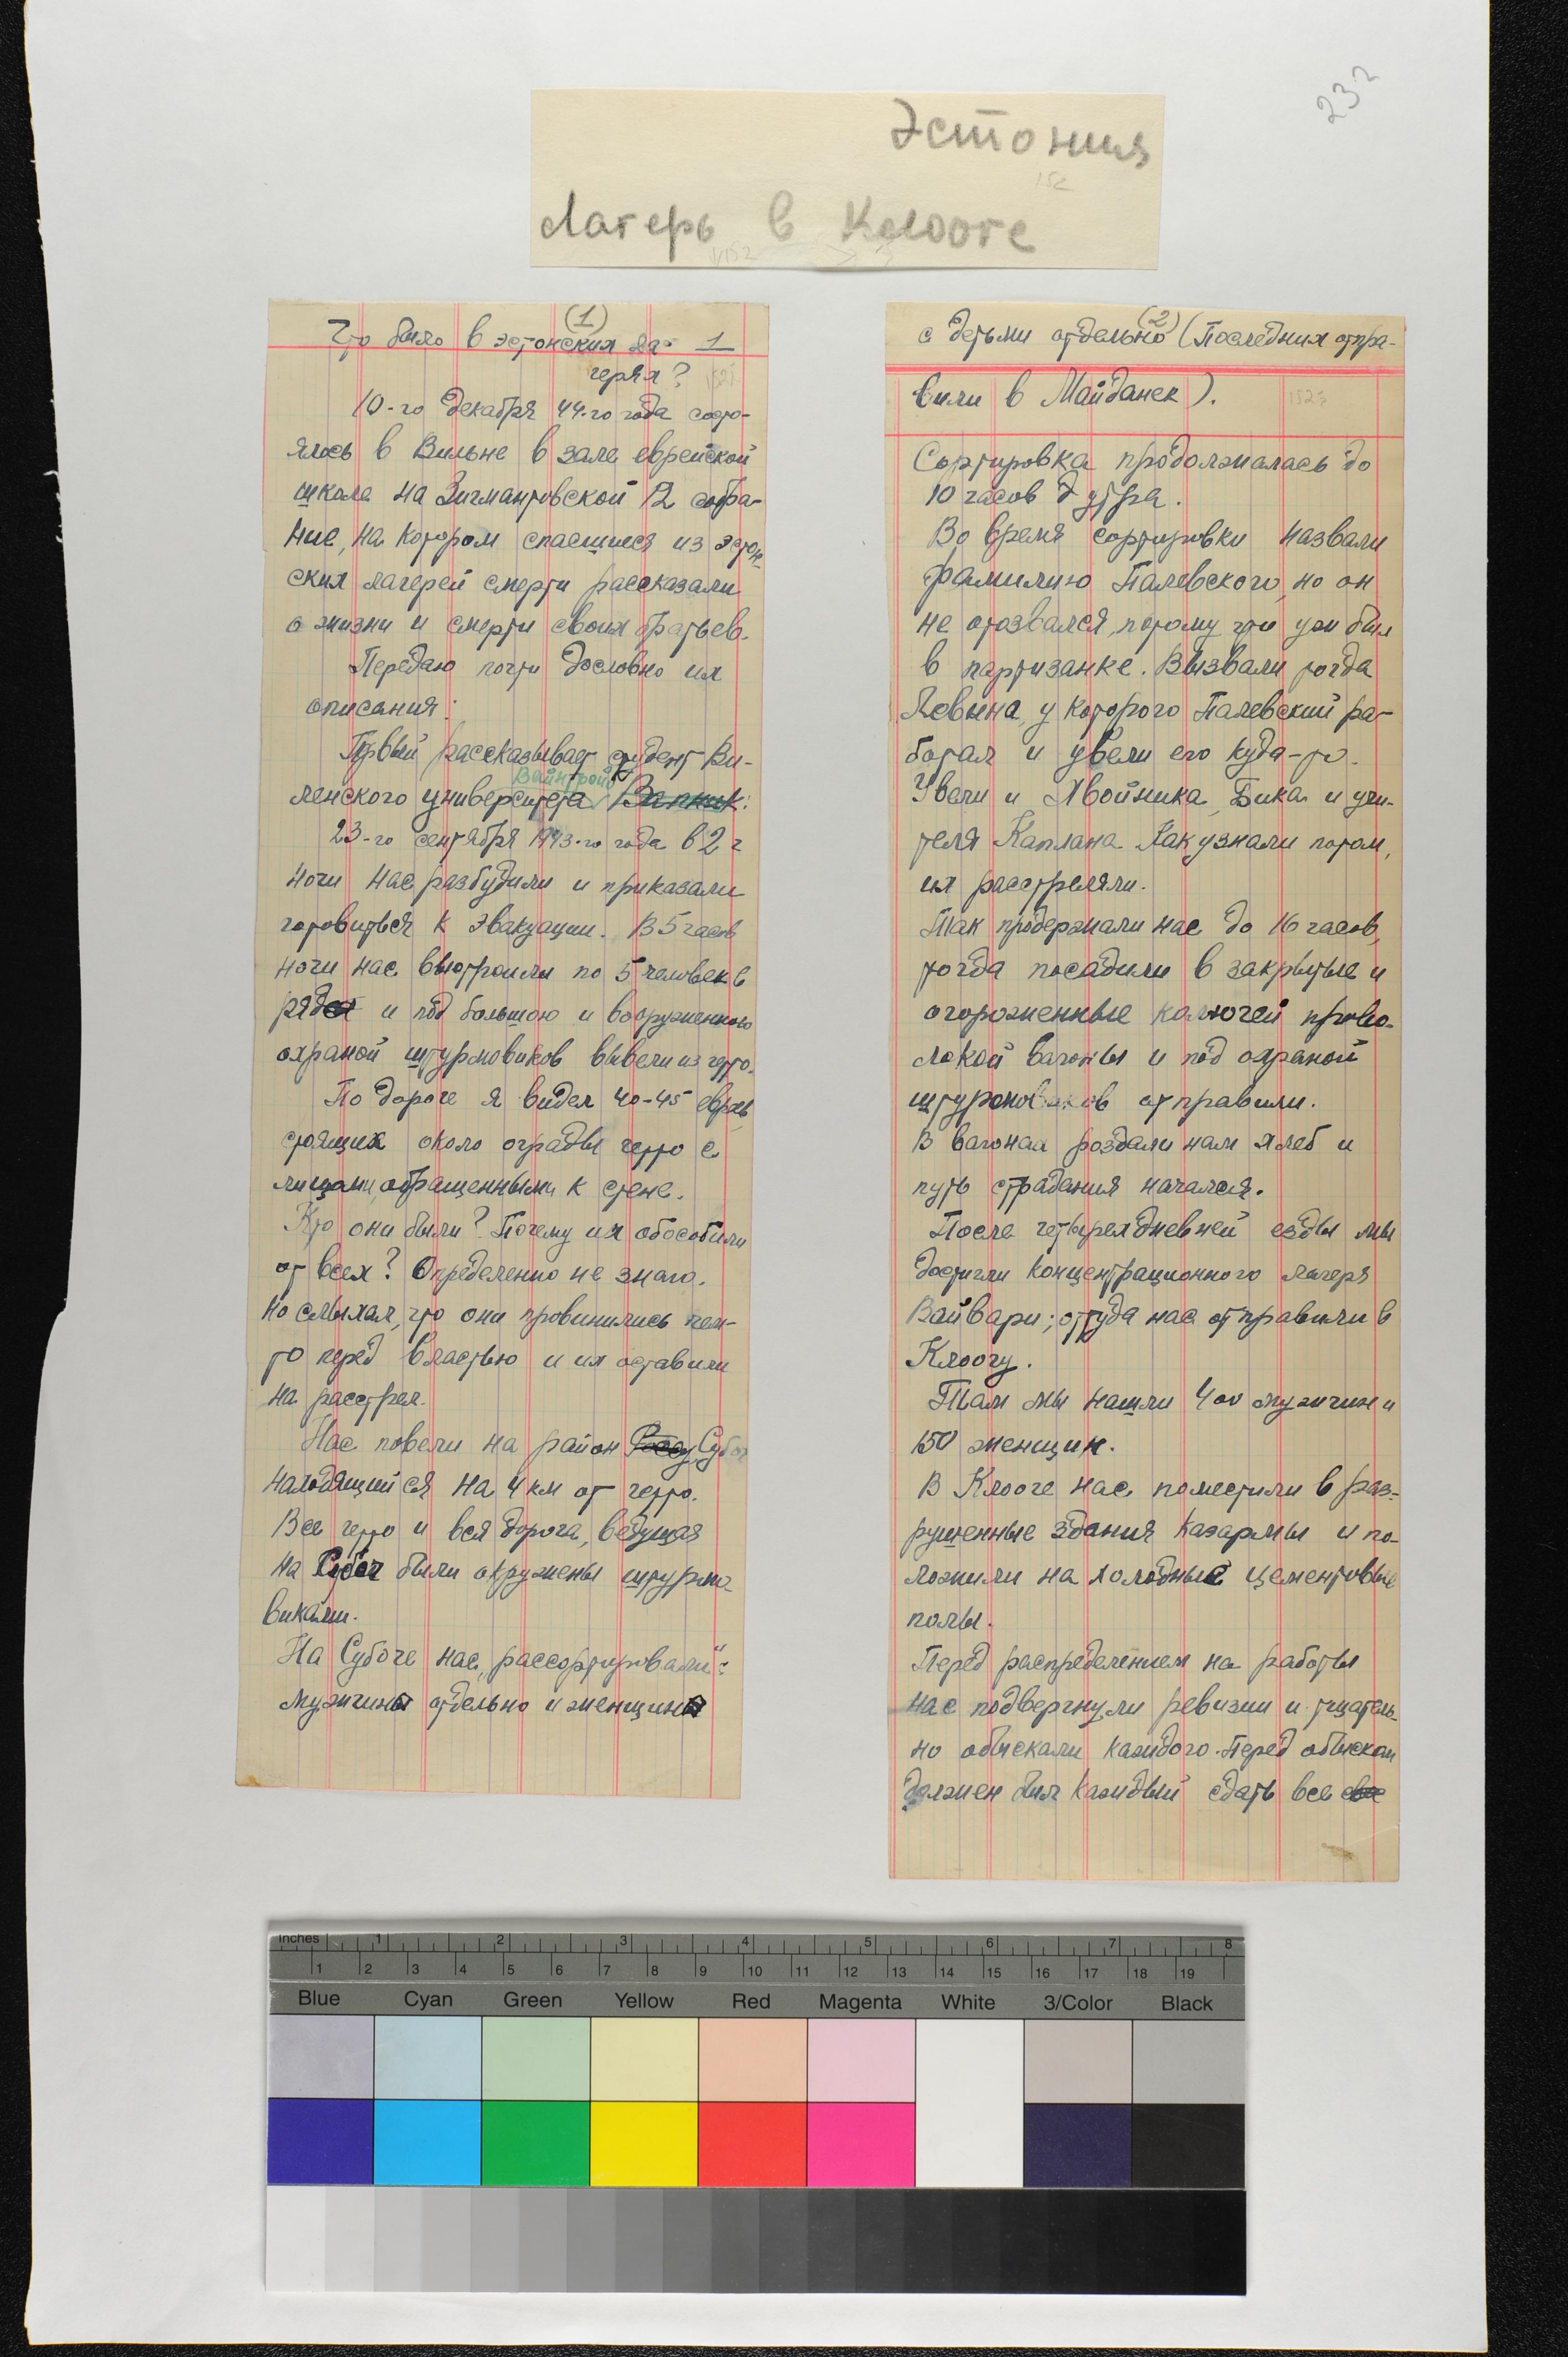 232
Эстония
152
Лагерь в Клооге
(1)
Что было в эстонских ла- 1
герях?
10-го декабря 44-го года состо-
ялось в Вильне в зале еврейской
школе на Зигмантовской 12 собра-
ние, на котором спасшиеся из эстон-
ских лагерей смерти рассказали
о жизни и смерти своих братьев.
Передаю почти дословно их
описания:
Первый рассказывает студент Ви-
Вайнтройб
ленского университета
23-го сентября 1943-го года в 2 ч
ночи нас разбудили и приказали
готовиться к эвакуации. В 5 часов
ночи нас выстроили по 5 человек в
ряд и под большою и вооруженною
охраной штурмовиков вывели из гетто.
По дороге я видел 40-45 евреев
стоящих около ограды гетто с
лицами, обращенными к стене.
Кто они были? Почему их обособили
от всех? Определенно не знаю.
Но слыхал, что они провинились чем-
то перед властью и их оставили
на расстрел.
Нас повели на район Россу Субоч
находящийся на 4 км от гетто.
Все гетто и вся дорога, ведущая
на Субоч были окружены штурмо-
виками.
На Субоче нас „рассортировали":
мужчины отдельно и женщины
(2)
с детьми отдельно (Последних отпра-
вили в Майданек).
Сортировка продолжалась до
10 часов утра.
Во время сортировки назвали
фамилию Палевского, но он
не отозвался, потому что уже был
в партизанке. Вызвали тогда
Левина, у которого Палевский ра-
ботал и увели его куда-то.
Увели и Хвойника, Бика и учи-
теля Каплана. Как узнали потом,
их расстреляли.
Так продержали нас до 16 часов,
тогда посадили в закрытые и
огороженные колючей прово-
локой вагоны и под охраной
штурмовиков отправили.
В вагонах роздали нам хлеб и
путь страдания начался.
После четырехдневней езды мы
достигли концентрационного лагеря
Вайвари; оттуда нас отправили в
Клоогу.
Там мы нашли 400 мужчин и
150 женщин.
В Клооге нас поместили в раз-
рушенные здания казармы и по-
ложили на холодные цементовые
полы.
Перед распределением на работы
нас подвергнули ревизии и тщатель-
но обыскали каждого. Перед обыском
должен был каждый сдать все свое
inches 1 2 3 4 5 6 7 8
1 2 3 4 5 6 7 8 9 10 11 12 13 14 15 16 17 18 19
Blue Cyan Green Yellow Red Magenta White 3/Color Black